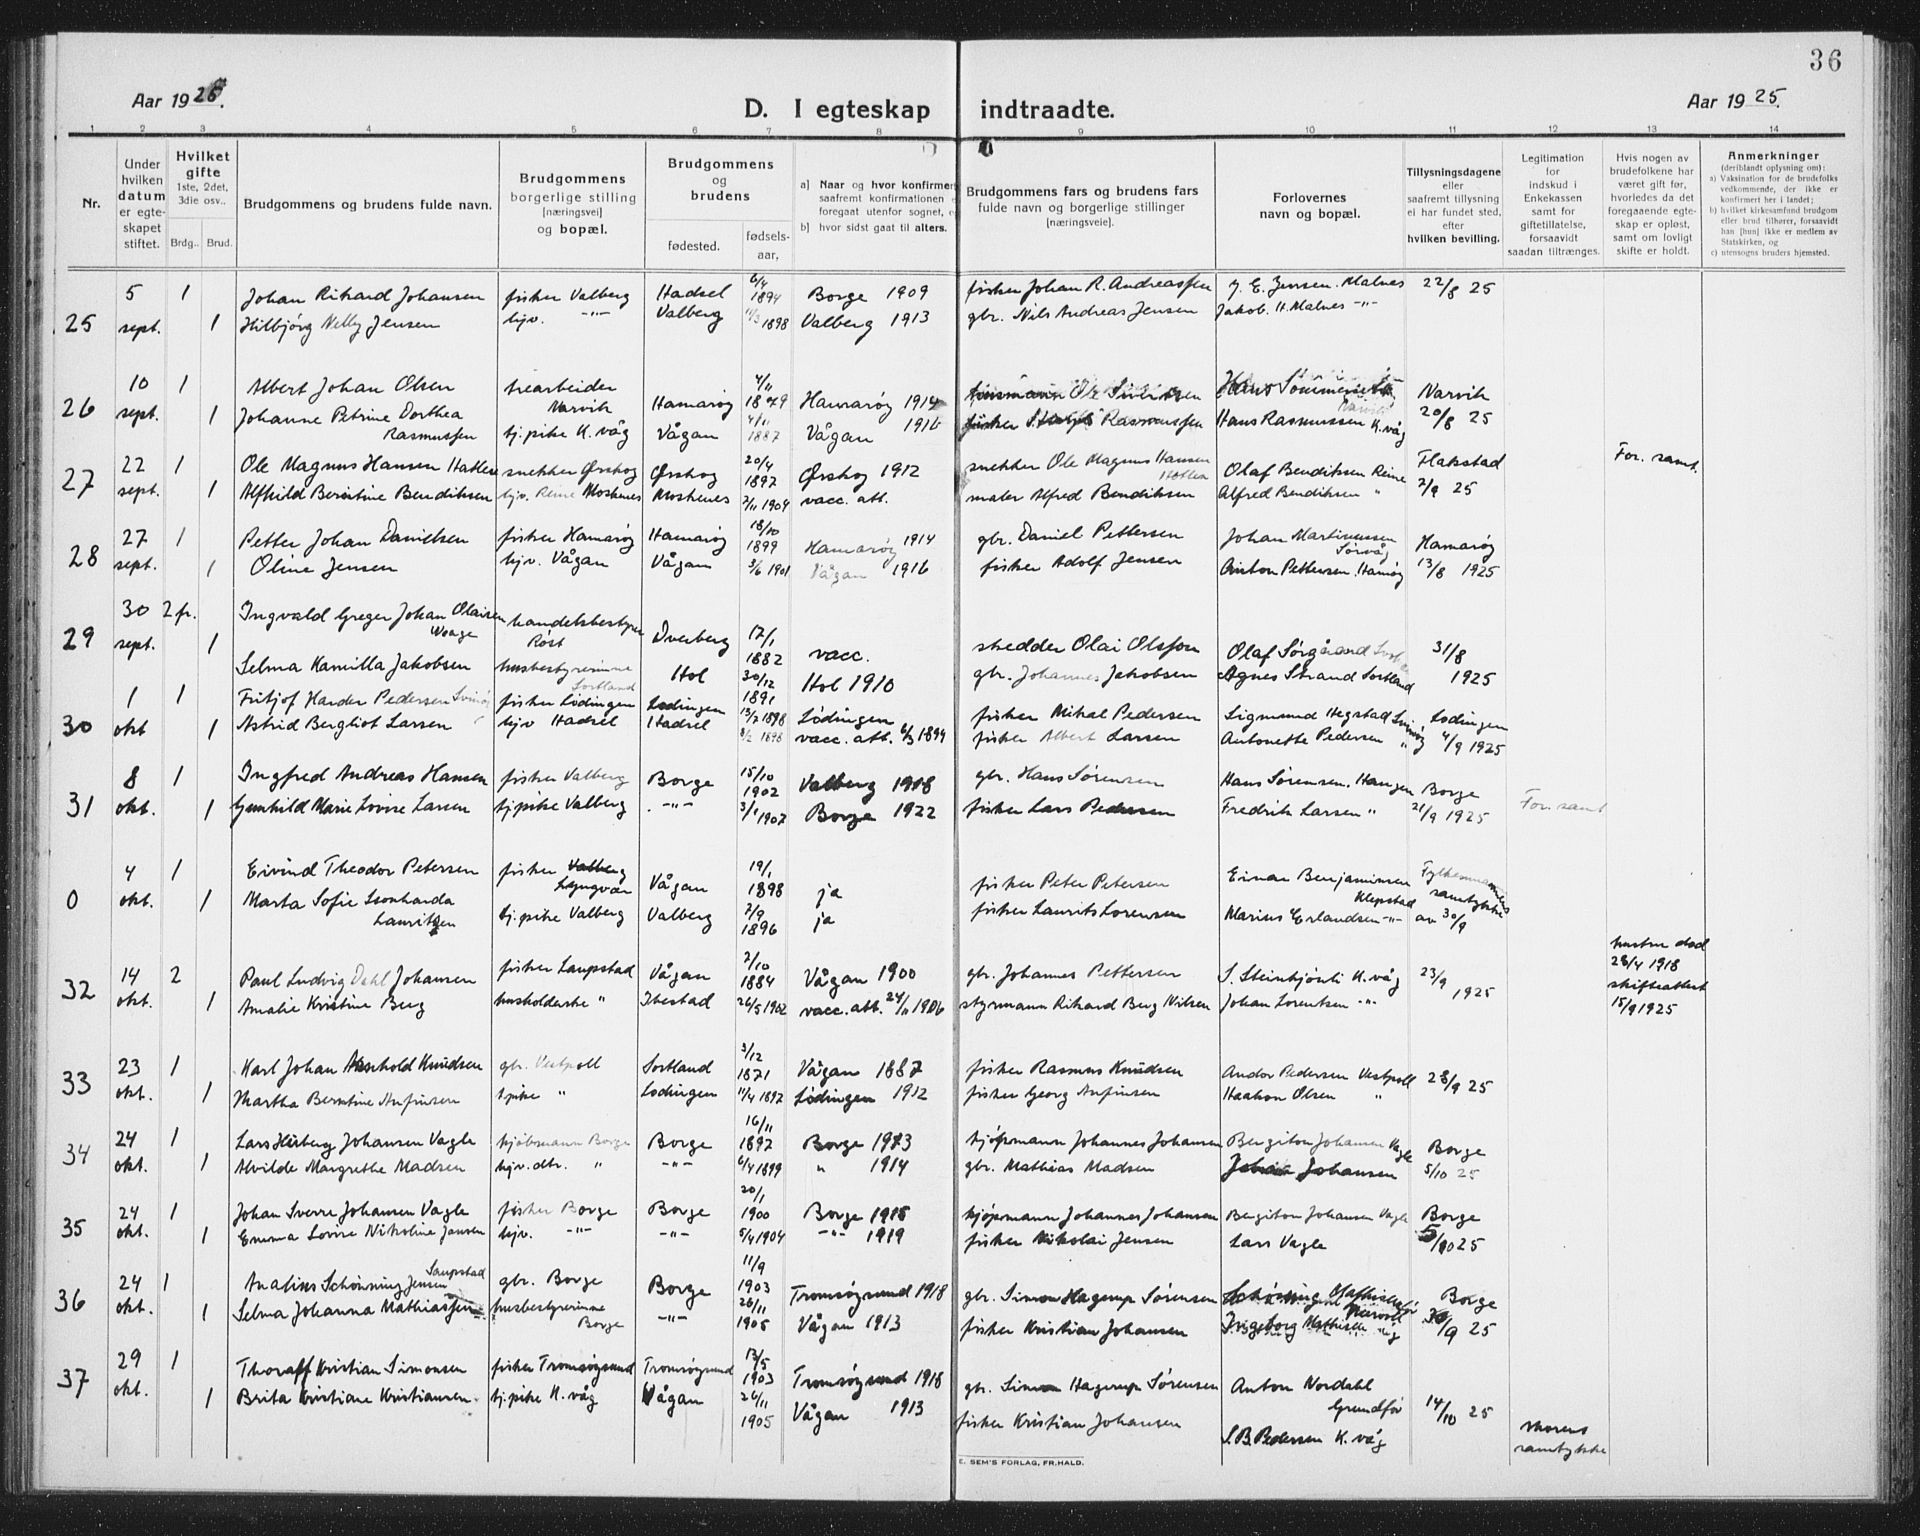 36
Aar 1925.
D. I egteskap indtraadte.
Aar 1925.
1 2 3 4 5 6 7 8 9 10 11 12 13 14
Nr.
Under hvilken datum er egteskapet stiftet.
Hvilket gifte 1ste, 2det, 3die osv..
Brdg.. Brud.
Brudgommens og brudens fulde navn.
Brudgommens borgerlige stilling [næringsvei] og bopæl.
Brudgommens og brudens
fødested. fødselsaar,
a] Naar og hvor konfirmert saafremt konfirmationen foregaat utenfor sognet,
b] hvor sidst gaat til alters.
Brudgommens fars og brudens fars fulde navn og borgerlige stillinger [næringsveie].
Forlovernes navn og bopæl.
Tillysningsdagene eller saafremt tillysning ei har fundet sted, efter hvilken bevilling.
Legitimation for indskud i Enkekassen samt for giftetillatelse, forsaavidt saadan tiltrænges.
Hvis nogen av brudefolkene har været gift før, hvorledes da det foregaaende egteskap er opløst, samt om lovlig skifte er holdt.
Anmerkninger (deriblandt oplysning om):
a) Vaksination for de brudefolks vedkommende, der ikke er konfirmert her i landet;
b) hvilket kirkesamfund brudgom eller brud tilhører, forsaavidt han [hun] ikke er medlem av Statskirken, og
c) utensogns bruders hjemsted.
25 5 sept. 1 Johan Rikard Johansen fisker Valberg Hadsel 6/4 1894 Borge 1909 fisker Johan R. Andreassen J. E. Jensen. Malnes 22/8 25
1 Hilbjørg Nelly Jensen hjv. -"- Valberg 11/3 1898 Valberg 1913 gbr. Nils Andreas Jensen Jakob. H. Malnes -"-
26 10 sept. 1 Albert Johan Olsen trearbeider Narvik Hamarøy 4/11 Hamarøy 1914 Narvik 20/8 25
1 Johanne Petrine Dorthea Rasmussen tj. pike K. våg Vågan 4/11 1887 Vågan 1916 fisker Rasmussen Hans Rasmussen K. våg
27 22 sept. 1 Ole Magnus Hansen Hatlen snekker Ørskog Ørskog 20/4 1897 Ørskog 1912 snekker Ole Magnus Hansen Hatlen Olaf Bendiksen Reine Flakstad 2/9 25 For. samt.
1 Alfhild Berntine Bendiksen hjv. Reine Moskenes Moskenes 2/11 1904 vacc. att. maler Alfred Bendiksen Alfred Bendiksen "
28 27 sept. 1 Petter Johan Danielsen fisker Hamarøy Hamarøy 18/10 1899 Hamarøy 1914 gbr. Daniel Pettersen Johan Martinussen Sørvåg Hamarøy 13/8 1925
1 Oline Jensen hjv. Vågan Vågan 3/6 1901 Vågan 1916 fisker Adolf Jensen Anton Pettersen. Hamøy
29 30 sept. 2 fr. Ingvald Greger Johan Olaisen Woage handelsbestyrer Røst Dverberg 17/1 1882 vacc. skredder Olai Olsson Olaf Sørgård 31/8 1925
1 Selma Kamilla Jakobsen husbestyrerinne Sortland Hol 30/12 1891 Hol 1910 gbr. Johannes Jakobsen Agnes Strand Sortland
30 1 okt 1 Fritjof Hander Pedersen Svinøy fisker Lødingen Lødingen 13/7 1898 Lødingen fisker Mikal Pedersen Sigmund Hegstad Svinøy Lødingen 4/9 1925
1 Astrid Bergliot Larsen hjv Hadsel Hadsel 8/2 1898 vacc. att. 6/3 1894 fisker Albert Larsen Antonette Pedersen "
31 8 okt. 1 Ingfred Andreas Hansen fisker Valberg Borge 15/10 1902 Valberg 1918 gbr. Hans Sørensen Hans Sørensen. Haugen Borge 21/9 1925 For. samt
1 Gunhild Marie Lovise Larsen tj. pike Valberg -"- 3/1 1907 Borge 1922 fisker Lars Pedersen Fredrik Larsen "
0 4 okt. 1 Eivind Theodor Petersen fisker Valberg Lyngvær Vågan 19/1 1898 ja fisker Peter Petersen Einar Benjaminsen Klepstad Fylkesmannens samtykke av 30/9
1 Marta Sofie Leonharda Lauritzen tj. pike Valberg Valberg 2/9 1896 ja fisker Laurits Lorensen Marius Erlandsen -"-
32 14 okt. 2 Paul Ludvig Dahl Johansen fisker Laupstad Vågan 2/10 1884 Vågan 1900 gbr. Johannes Pettersen S. Steinhjønli K. våg 23/9 1925 hustru død 28/4 1918 skifteattest 15/9 1925
1 Amalie Kristine Berg husholderske " Ibestad 26/5 1902 vacc. att. 24/11 1906 styrmann Rikard Berg Nilsen Johan Lorentsen -"-
33 23 okt. 1 Karl Johan Arnhold Knudsen gbr. Vestpoll Sortland 3/12 1871 Vågan 1887 fisker Rasmus Knudsen Andor Pedersen Vestpoll 28/9 25
1 Martha Berntine Anfinsen tj.pike " Lødingen 11/4 1897 Lødingen 1912 fisker Georg Anfinsen Haakon Olsen "
34 24 okt. 1 Lars Hilberg Johansen Vagle kjøbmann Borge Borge 16/11 1897 Borge 1913 kjøpmann Johannes Johansen Bergiton Johansen Vagle Borge 5/10 25
1 Alvilde Margrethe Madsen hjv. dtr. " -"- 6/4 1899 " 1914 gbr. Mathias Madsen Johan Johansen
35 24 okt. 1 Johan Sverre Johansen Vagle fisker Borge Borge 20/1 1900 Borge 1915 kjøpmann Johannes Johansen Bergiton Johansen Vagle Borge 5/10 25
1 Emma Lovise Nikoline Jensen hjv. -"- -"- 5/4 1904 -"- 1919 fisker Nikolai Jensen Lars Vagle
36 24 okt. 1 Analius Schønning Jensen Laupstad gbr. Borge Borge 11/9 1903 Tromsøysund 1918 gbr. Simon Hagerup Sørensen Borge 30/9 25
1 Selma Johanna Mathiassen husbestyrerinne Borge -"- 26/11 1905 Vågan 1913 fisker Kristian Johansen Ingeborg
37 29 okt. 1 Thoralf Kristian Simonsen fisker Tromsøysund Tromsøysund 13/5 1903 Tromsøysund 1918 gbr. Simon Hagerup Sørensen Anton Nordahl Grundfør 14/10 25
1 Brita Kristiane Kristiansen tj. pike K. våg Vågan 26/11 1905 Vågan 1913 fisker Kristian Johansen S. B. Pedersen K. våg samtykke
E. SEM'S FORLAG, FR.HALD.